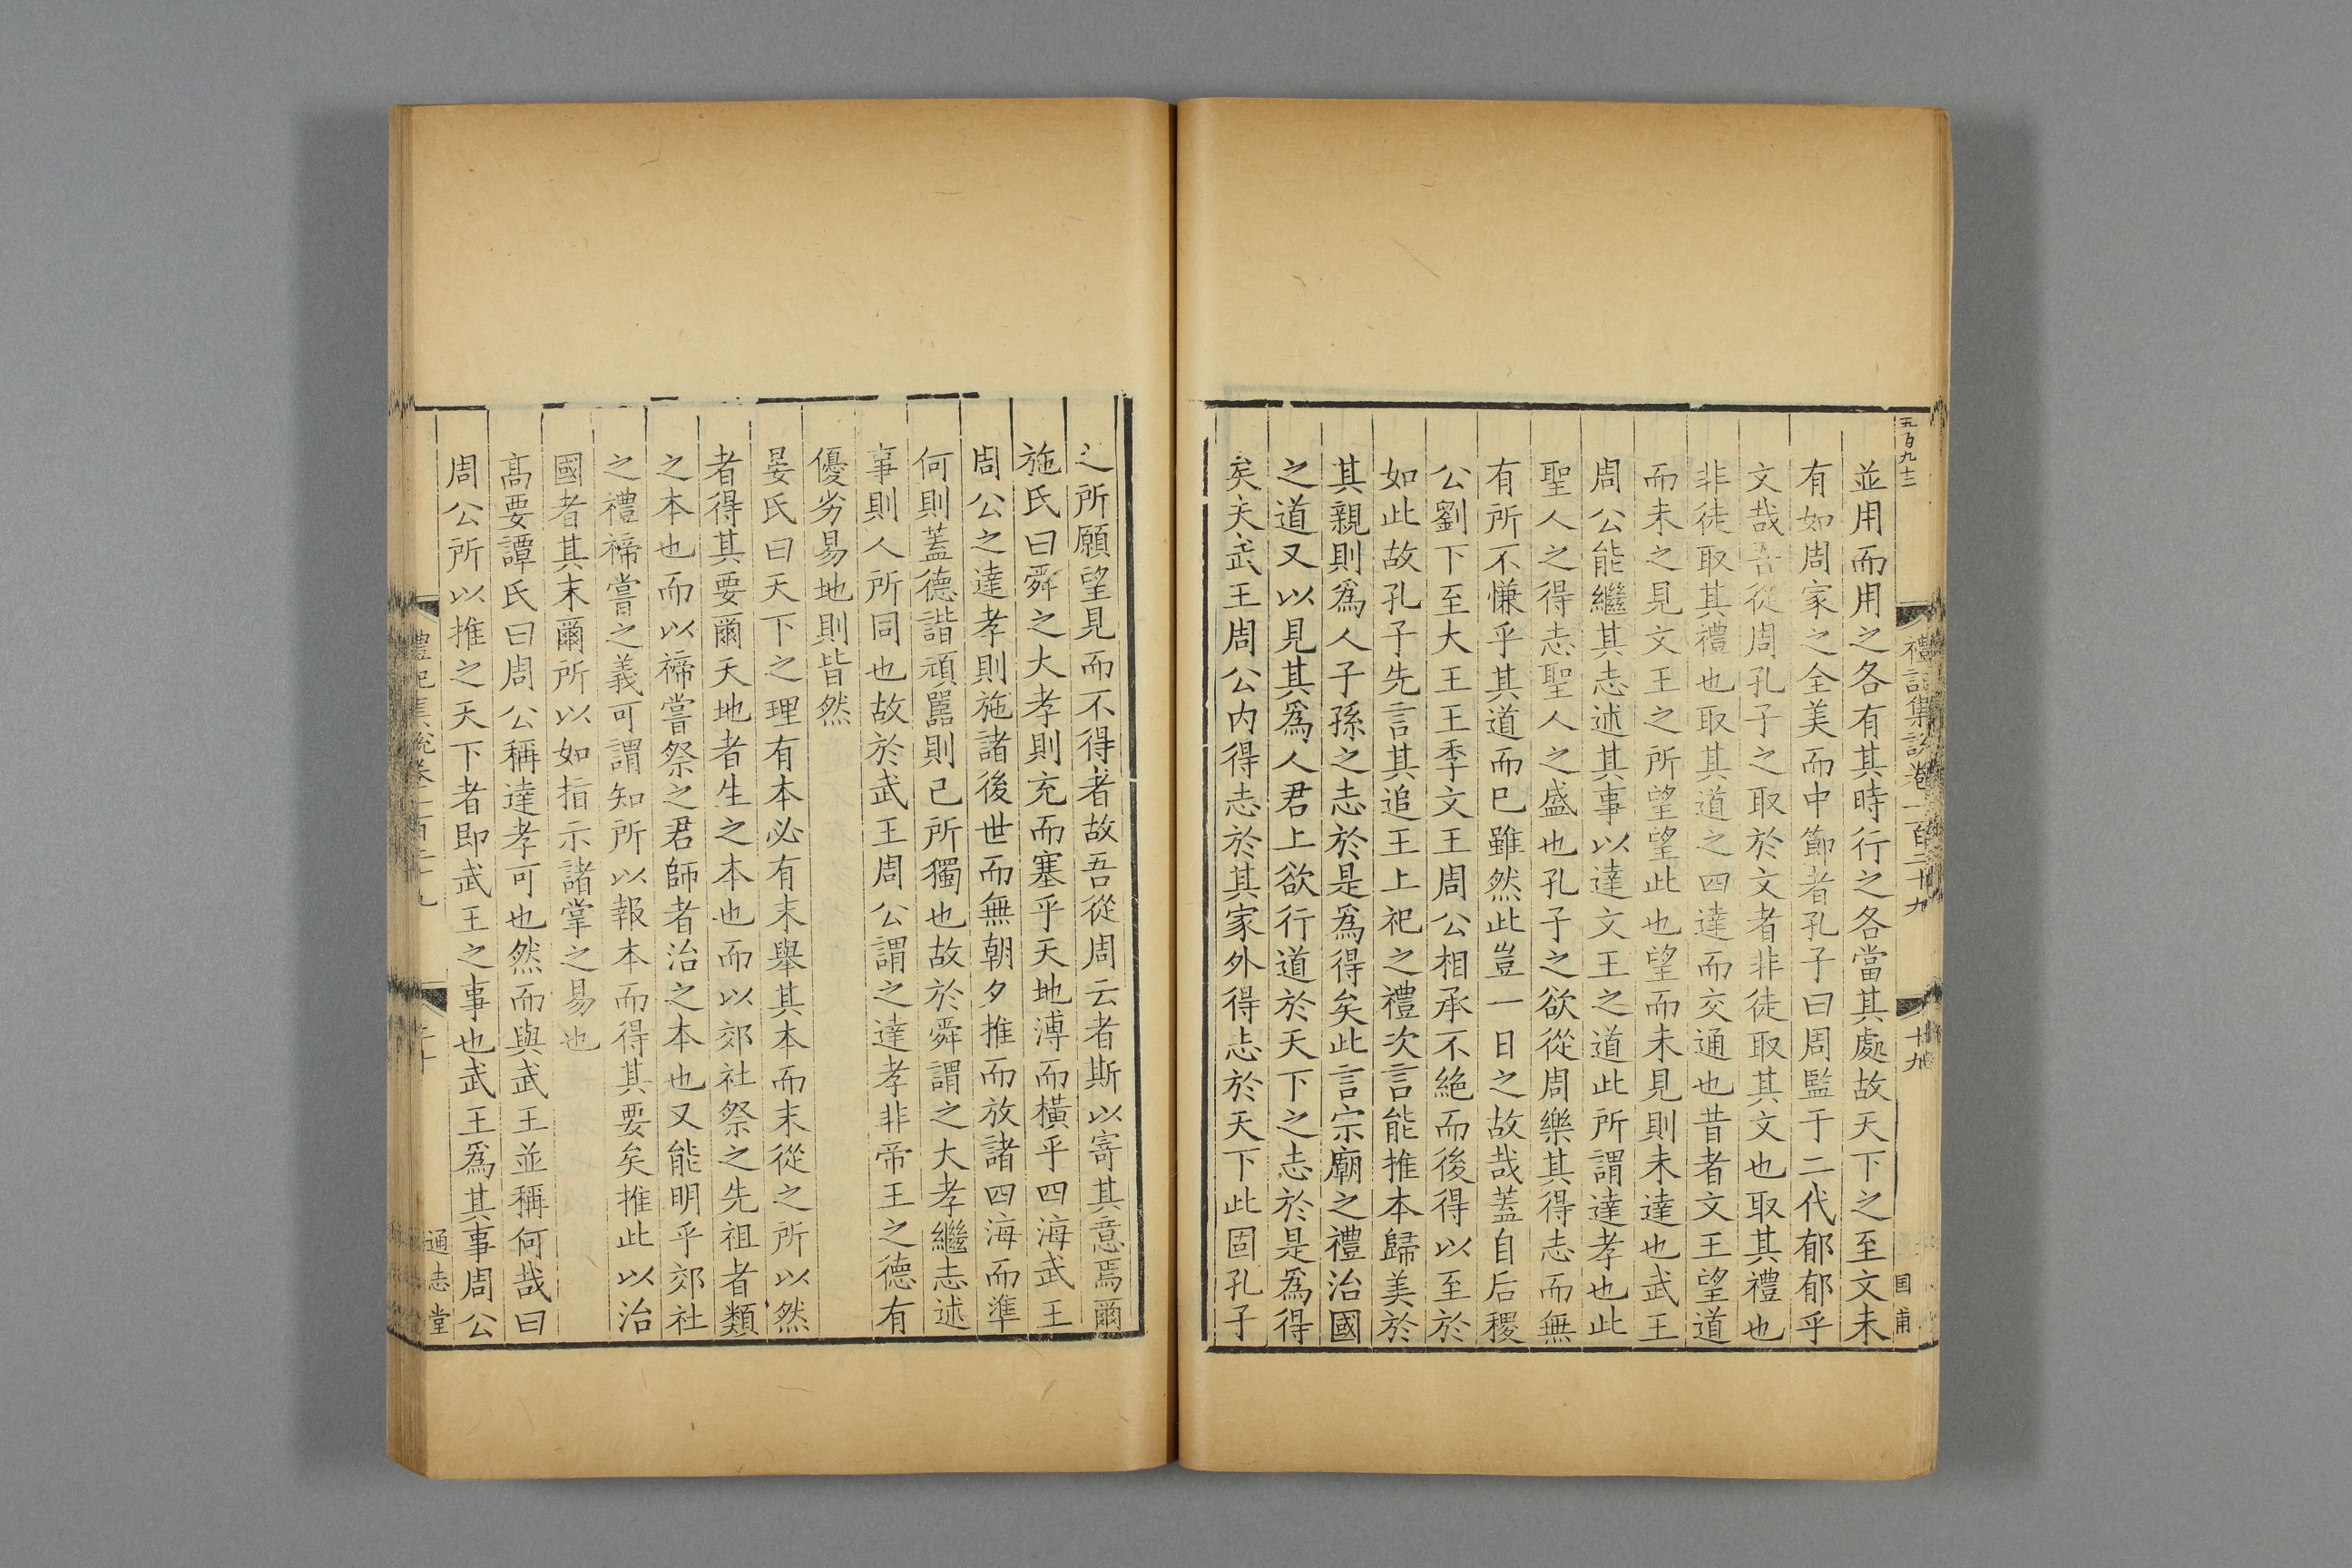 五百九十三
禮記集說卷一百二十九
十九
国甫
並用而用之各有其時行之各當其處故天下之至文未
有如周家之全美而中節者孔子曰周監于二代郁郁乎
文哉吾從周孔子之取於文者非徒取其文也取其禮也
非徒取其禮也取其道之四達而交通也昔者文王望道
而未之見文王之所望望此也望而未見則未達也武王
周公能繼其志述其事以達文王之道此所謂達孝也此
聖人之得志聖人之盛也孔子之欲從周樂其得志而無
有所不慊乎其道而巳雖然此豈一日之故哉蓋自后稷
公劉下至大王王季文王周公相承不絶而後得以至於
如此故孔子先言其追王上祀之禮次言能推本歸美於
其親則爲人子孫之志於是爲得矣此言宗廟之禮治國
之道又以見其爲人君上欲行道於天下之志於是爲得
矣夫武王周公内得志於其家外得志於天下此固孔子
之所願望見而不得者故吾從周云者斯以寄其意焉爾
施氏曰舜之大孝則充而塞乎天地溥而橫乎四海武王
周公之達孝則施諸後世而無朝夕推而放諸四海而準
何則蓋德諧頑嚚則己所獨也故於舜謂之大孝繼志述
事則人所同也故於武王周公謂之達孝非帝王之德有
優劣易地則皆然
晏氏曰天下之理有本必有末舉其本而末從之所以然
者得其要爾天地者生之本也而以郊社祭之先祖者類
之本也而以禘嘗祭之君師者治之本也又能明乎郊社
之禮禘嘗之義可謂知所以報本而得其要矣推此以治
國者其末爾所以如指示諸掌之易也
高要譚氏曰周公稱達孝可也然而與武王並稱何哉曰
周公所以推之天下者即武王之事也武王爲其事周公
禮記集說卷一百二十九
二十
通志堂